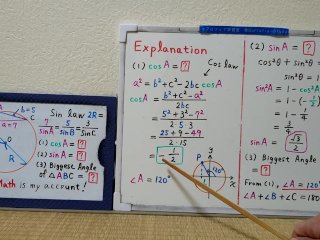 b=5
a=7
Sin law 2R=
7/sinA = 5/sinB = 3/sinC
R
O
(1) cosA = ?
(2) sinA = ?
(3) Biggest Angle
of △ABC = ?
Math is my account!
Explanation
(1) cosA = ?
Cos law
a² = b² + c² - 2bc cosA
cosA = b² + c² - a² / 2bc
= 5² + 3² - 7² / 2·5·3
= 25 + 9 - 49 / 2·15
= - 1/2
∠A = 120°
P
y
x
120°
(2) sinA = ?
cos²θ + sin²θ =
sin²θ = 1
sin²A = 1 - cos²A
= 1 - (-1/2)
= 1 - 1/4
sinA = √3/2
(3) Biggest
= ?
From (1), ∠A = 120°
∠A + ∠B + ∠C = 180